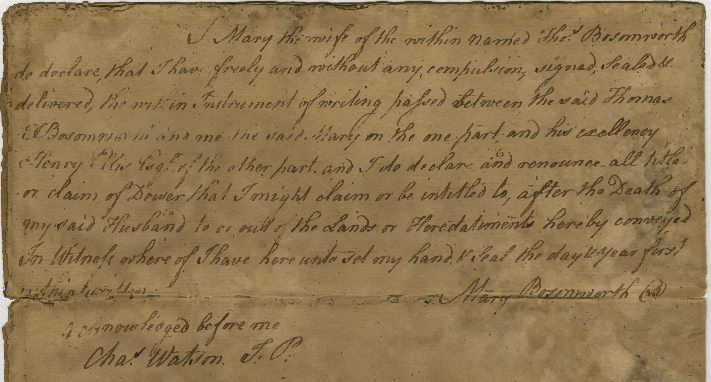 I Mary the wife of the within named Thos. Bosomworth
do declare, that I have freely and without any compulsion, signed, Sealed &
delivered, the within Instrument of writing passed between the said Thomas
Bosomworth and me the said Mary on the one part, and his excellency
Henry Ellis Esqr. of the other part. and I do declare and renounce all title
or claim of Dower that I might claim or be intitled to, after the Death of
my said Husband to or out of the Lands or Heredatiments hereby conveyed
In Witness where of I have here unto set my hand & Seal the day & year first
within written
Mary Bosomworth
Acknowledged before me
Chas. Watson. J. P.